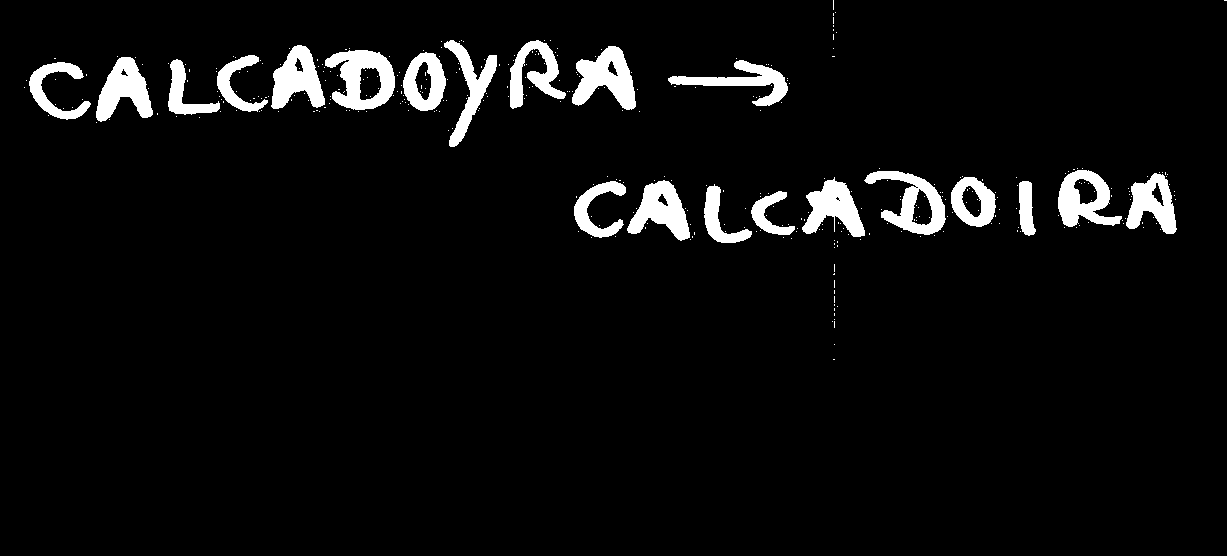 CALCADOYRA →
CALCADOIRA